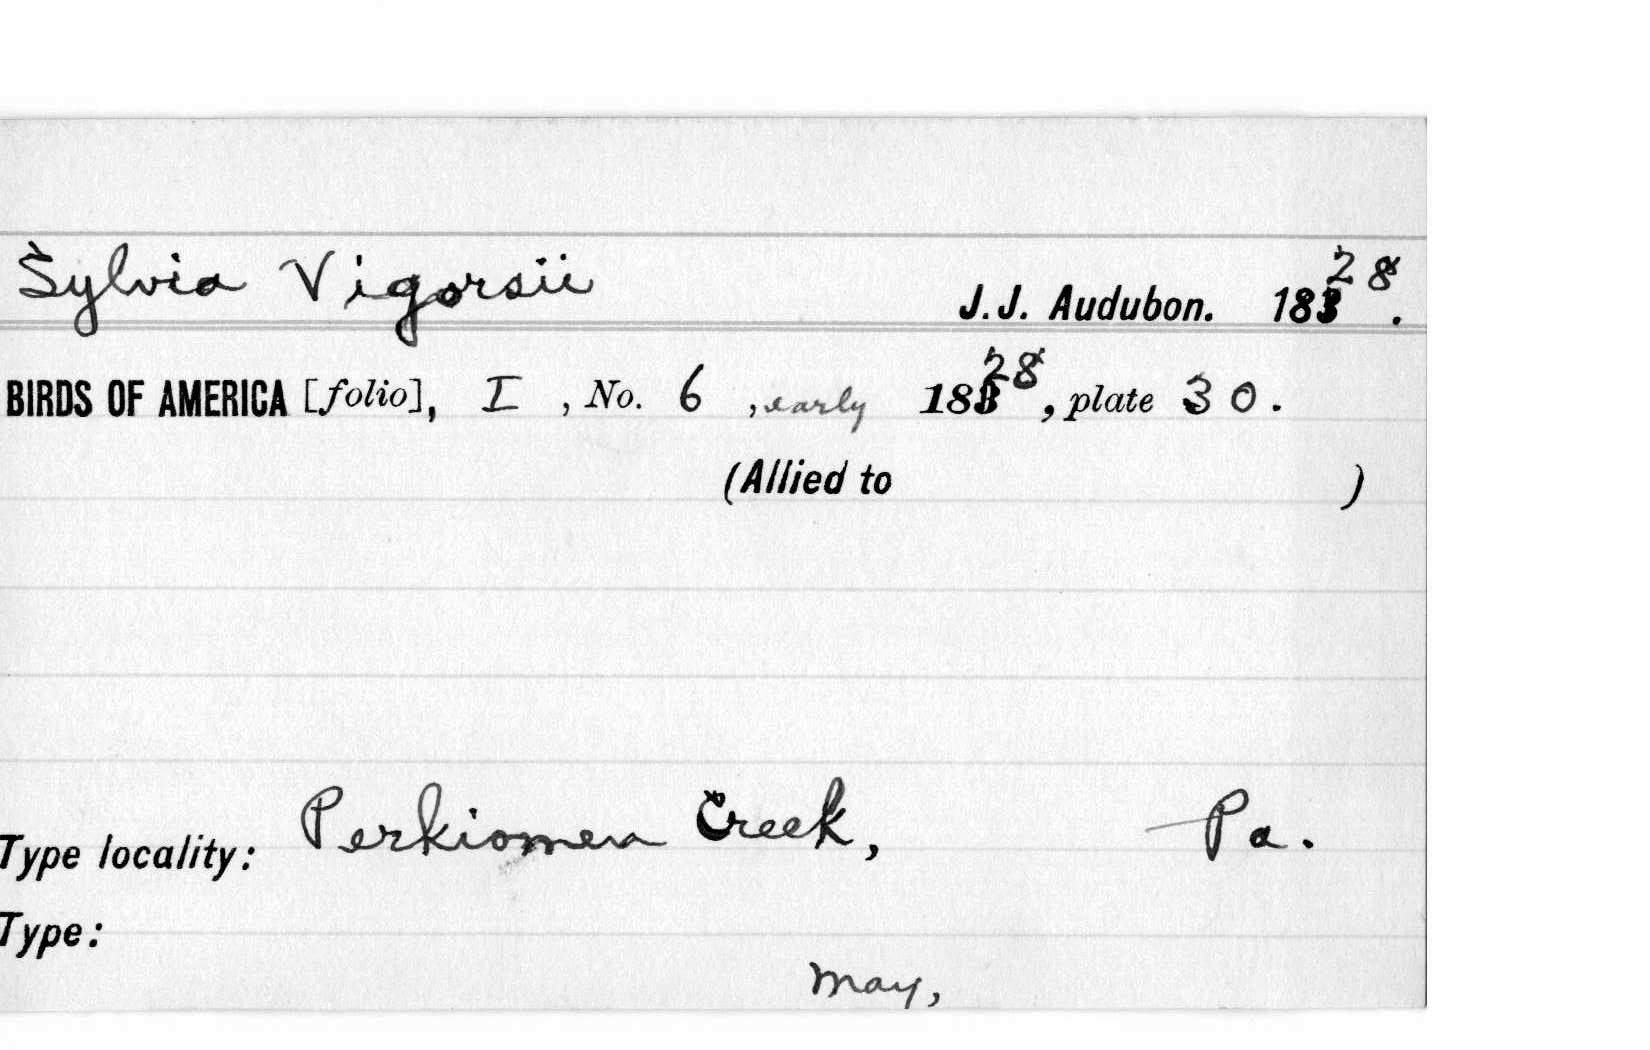 Sylvia Vigorsii J.J. Audubon. 1828.
BIRDS OF AMERICA [folio], I, No. 6, early 1828, plate 30.
(Allied to )
Type locality: Perkiomen Creek, Pa.
Type:
May,